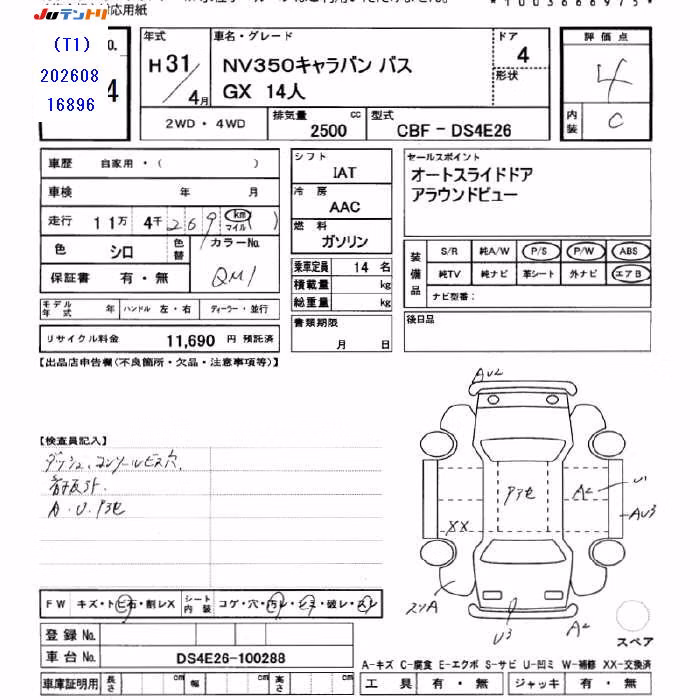 応用紙
JUテントリ
*1003666975*
(T1)
202608
16896
No.
4
年式
H31/4月
車名・グレード
NV350キャラバン バス
GX 14人
ドア
4
形状
評価点
4
内装
C
2WD・4WD
排気量
2500
cc
型式
CBF-DS4E26
車歴 自家用・( )
車検 年 月
走行 11万 4千 269 km マイル ( )
色 シロ
色替
カラーNo.
QM1
保証書 有・無
モデル年式 年
ハンドル 左・右
ディーラー・並行
リサイクル料金 11,690 円 預託済
シフト
IAT
冷房
AAC
燃料
ガソリン
乗車定員 14 名
積載量 kg
総重量 kg
書類期限
月 日
セールスポイント
オートスライドドア
アラウンドビュー
装備品
S/R 純A/W P/S P/W ABS
純TV 純ナビ 革シート 外ナビ エアB
ナビ型番:
後日品
【出品店申告欄(不良箇所・欠品・注意事項等)】
【検査員記入】
ダッシュ、コンソールビス穴、
A・U・P3色
AU2
P3色
A2
U1
AU3
XX
スリA
U3
A2
スペア
FW キズ・トビ石・割レX
シート内装 コゲ・穴・汚レ・シミ・破レ・スレ
登録No.
車台No. DS4E26-100288
車庫証明用 長さ cm 幅 cm 高さ cm
A-キズ C-腐食 E-エクボ S-サビ U-凹ミ W-補修 XX-交換済
工具 有・無 ジャッキ 有・無